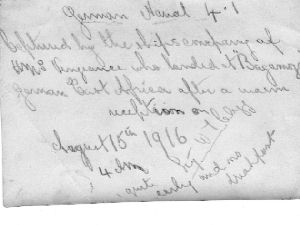 German Naval 4.1
Captured by the ships company of
HMS Vengeance who landed at Bagamoyo
German East Africa after a warm
reception on
August 15th 1916
4 Am
quite early and no
breakfast